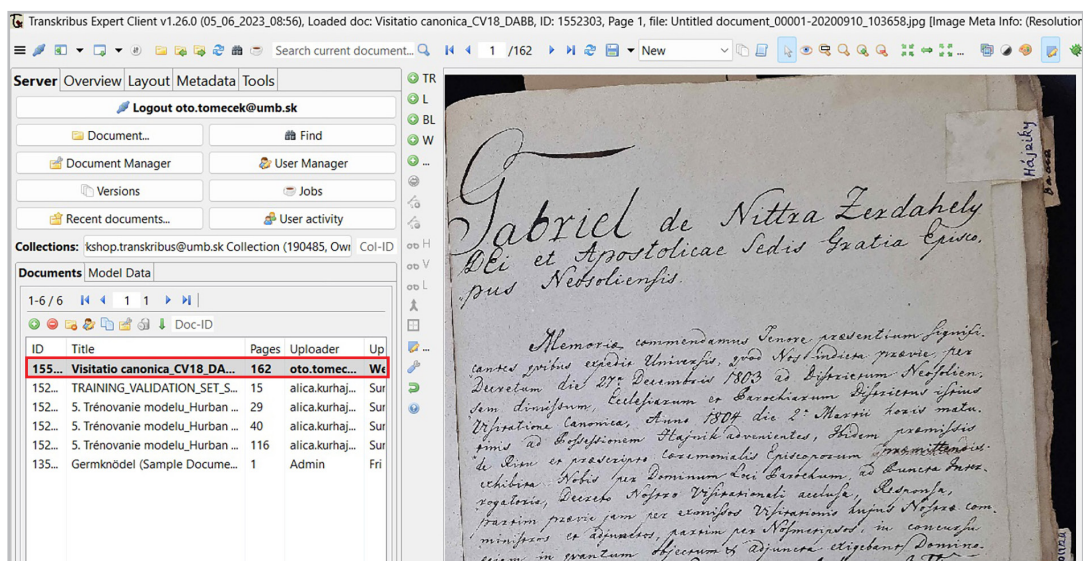 Transkribus Expert Client v1.26.0 (05_06_2023_08:56), Loaded doc: Visitatio canonica_CV18_DABB, ID: 1552303, Page 1, file: Untitled document_00001-20200910_103658.jpg [Image Meta Info: (Resolution
Search current document...
1 /162
New
Server Overview Layout Metadata Tools
Logout oto.tomecek@umb.sk
Document...
Find
Document Manager
User Manager
Versions
Jobs
Recent documents...
User activity
Collections: kshop.transkribus@umb.sk Collection (190485, Owr Col-ID
Documents Model Data
1-6 / 6 1 1
Doc-ID
ID Title Pages Uploader Up
155... Visitatio canonica_CV18_DA... 162 oto.tomec... We
152... TRAINING_VALIDATION_SET_S... 15 alica.kurhaj... Sur
152... 5. Trénovanie modelu_Hurban ... 29 alica.kurhaj... Sur
152... 5. Trénovanie modelu_Hurban ... 40 alica.kurhaj... Sur
152... 5. Trénovanie modelu_Hurban ... 116 alica.kurhaj... Sur
135... Germknödel (Sample Docume... 1 Admin Fri
TR
L
BL
W
...
H
V
L
...
Hájniky
Gabriel de Nittra Zerdahely
DEi et Apostolicae Sedis Gratia Episco,
pus Neosoliensis.
Memoriae commendamus Tenore praesentium signifi,
cantes quibus expedit Universis, quod Nos indicta praevie, per
Decretum die 27a Decembris 1803 ad Districtum Neosolien,
sem dimissum, Ecclesiarum et Parochiarum Districtus istius
Visitatione Canonica, Anno 1804 die 2a Martii horis matu,
tinis ad Possessionem Hajnik advenientes, Ibidem praemissis
de Ritu et praescripto Ceremonialis Episcoporum praemittendis
exhibita Nobis per Dominum Loci Parochum, ad Puncta Inter,
rogatoria, Decreto Nostro Visitationali acclusa, Responsa,
partim praevie jam per exmissos Visitationis hujus Nostrae Com,
ministros et adjunctos, partim per Nosmetipsos, in concursu
etiam in quantum objectum et adjuncta exigebant Domino